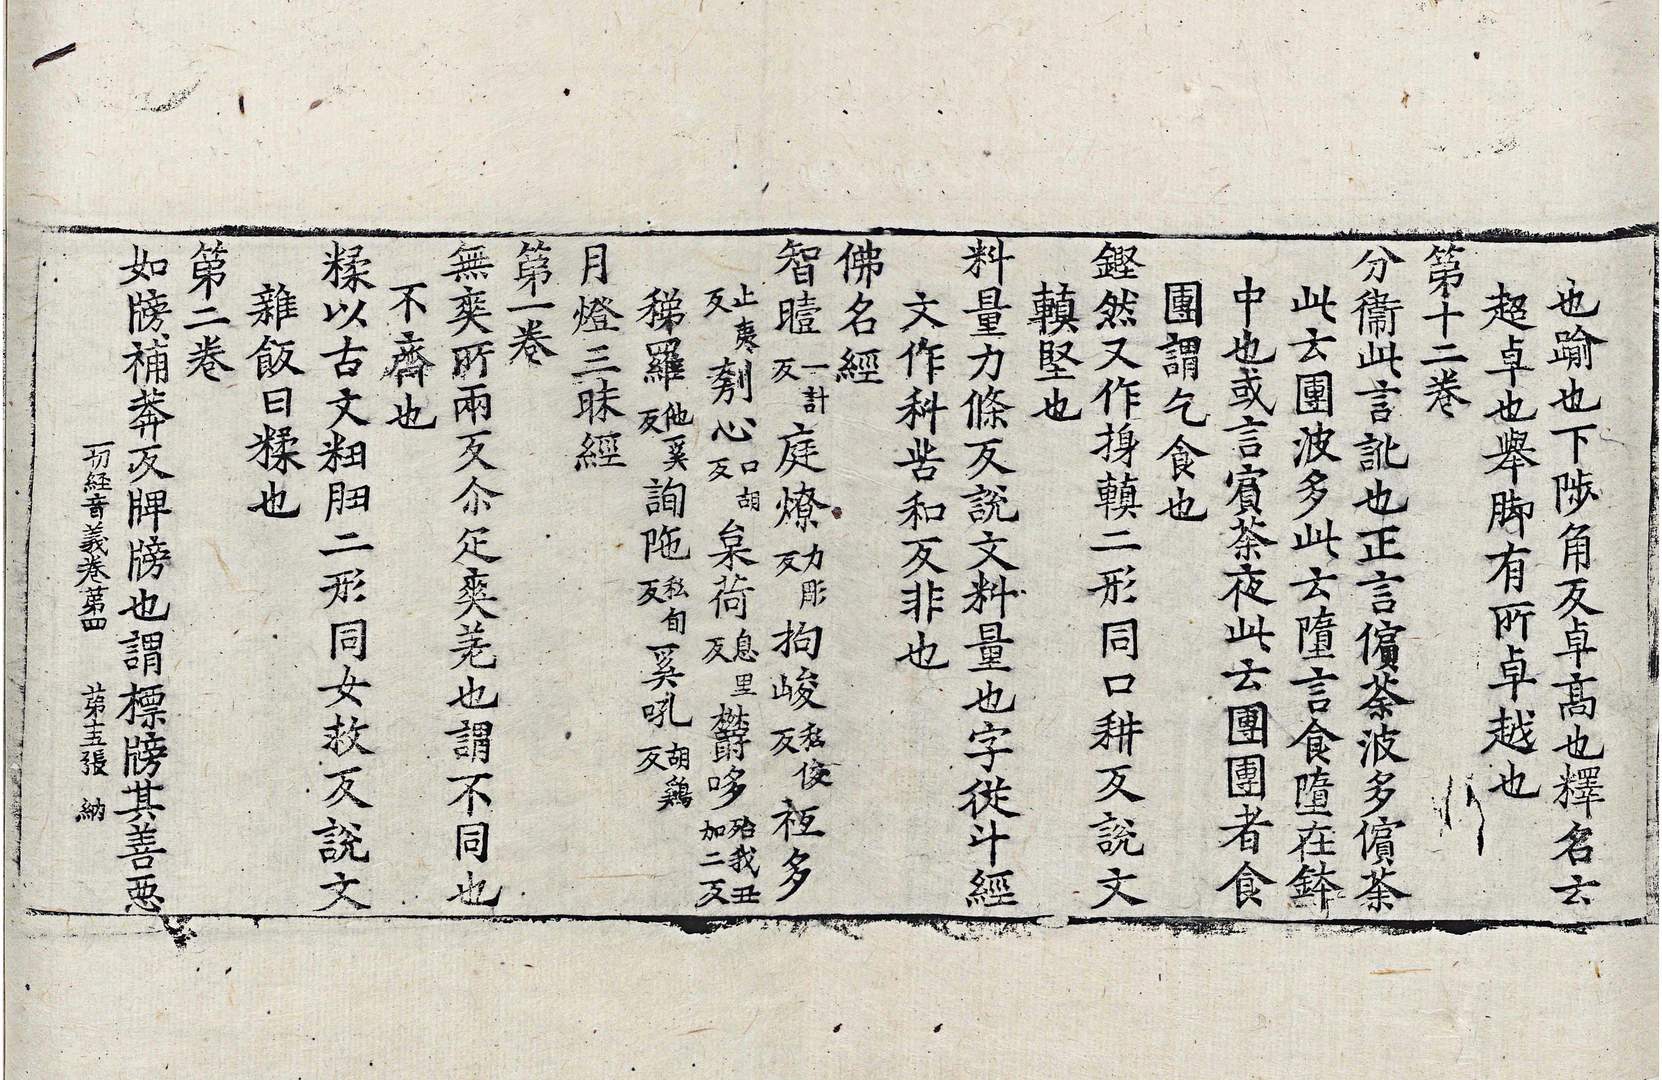 也踰也下陟角反卓高也釋名云
超卓也舉脚有所卓越也
第十二卷
分衞此言訛也正言儐荼波多儐荼
此云團波多此云墮言食墮在鉢
中也或言賓荼夜此云團團者食
團謂乞食也
鏗然又作摼䡰二形同口耕反說文
䡰堅也
料量力條反說文料量也字從斗經
文作科苦和反非也
佛名經
智曀一計反庭燎力彫反拘峻私俊反袒多
止夷反刳心口胡反枲荷息里反欝哆殆我丑加二反
稊羅他奚反詢陁私旬反奚吼胡鷄反
月燈三昧經
第一卷
無爽所兩反尒疋爽差也謂不同也
不齊也
糅以古文粈䏔二形同女救反說文
雜飯曰糅也
第二卷
如牓補莽反牌牓也謂標牓其善惡
一切経音義卷第四 第五張 納